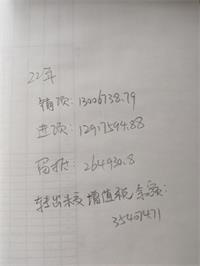 22年
销项:13006738.79
进项:12917594.88
留抵:264930.8
转出未交增值税余额:
354074.71